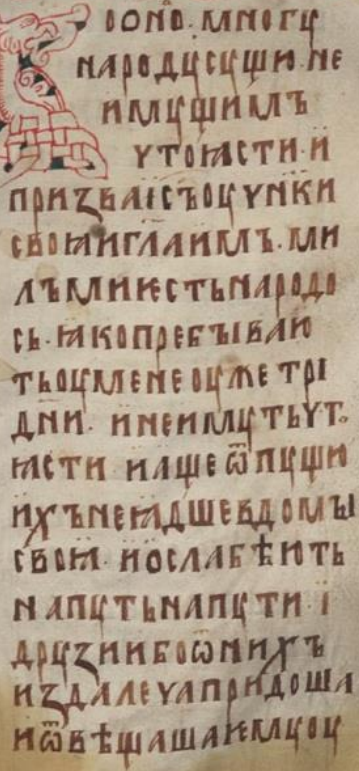 ѺОНО· МНОГꙊ
НАРОДꙊ СꙊЩЮ· НЕ
ИМꙊЩИМЪ
ЧТО ꙖСТИ· И
ПРИЗВА І҃СЪ ОУЧНКИ
СВОꙖ И ГЛА ИМЪ· МИ
ЛЪ МИ ѤСТЬ НАРОДО
СЬ· ꙖКО ПРЕБЫВАЮ
ТЬ ОУ МЕНЕ ОУЖЕ ТРІ
ДНИ· И НЕ ИМꙊТЬ ЧТО
ꙖСТИ И АЩЕ Ѿ ПꙊЩЮ
ИХЪ НЕ ꙖДШЕ В ДОМЫ
СВОꙖ· И ОСЛАБѢЮТЬ
НА ПꙊТЬ НА ПꙊТИ· Ї
ДРꙊЗИИ БО Ѿ НИХЪ
ИЗДАЛЕЧА ПРИДОША
И ѾВѢЩАША ѤМꙊ ОУ